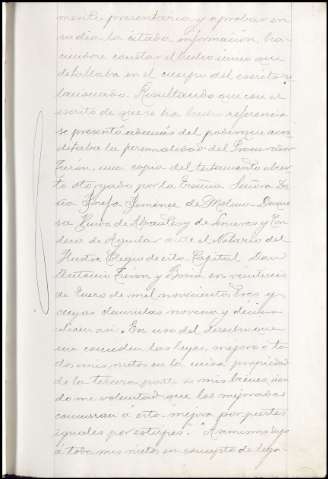 mente presentaria y aprobar en
su dia la citada informacion, ha-
ciendose constar el hecho
detallaba en el cuerpo del escrito
Resultando que con el
escrito de que se ha hecho referencia
se presentó además del poder que acre-
ditaba la personalidad del Procurador
una copia del testamento abier-
to otorgado por la Excma Señora Do-
ña Josefa Jimenez de Molina Duque-
sa Viuda de y de y Con-
desa de Aguilar ante el Notario del
Ilustre Colegio de esta Capital Don
y en veintiseis
de Enero de mil novecientos tres y
cuyas clausulas novena y decima
dicen asi. "En uso del derecho que
me conceden las leyes, mejoro á to-
dos mis nietos en la nuda propiedad
de la tercera parte de mis bienes, sien-
do mi voluntad que los mejorados
concurran á esta mejora por partes
iguales por estirpes." "Asimismo lego
á todos mis nietos en concepto de lega-